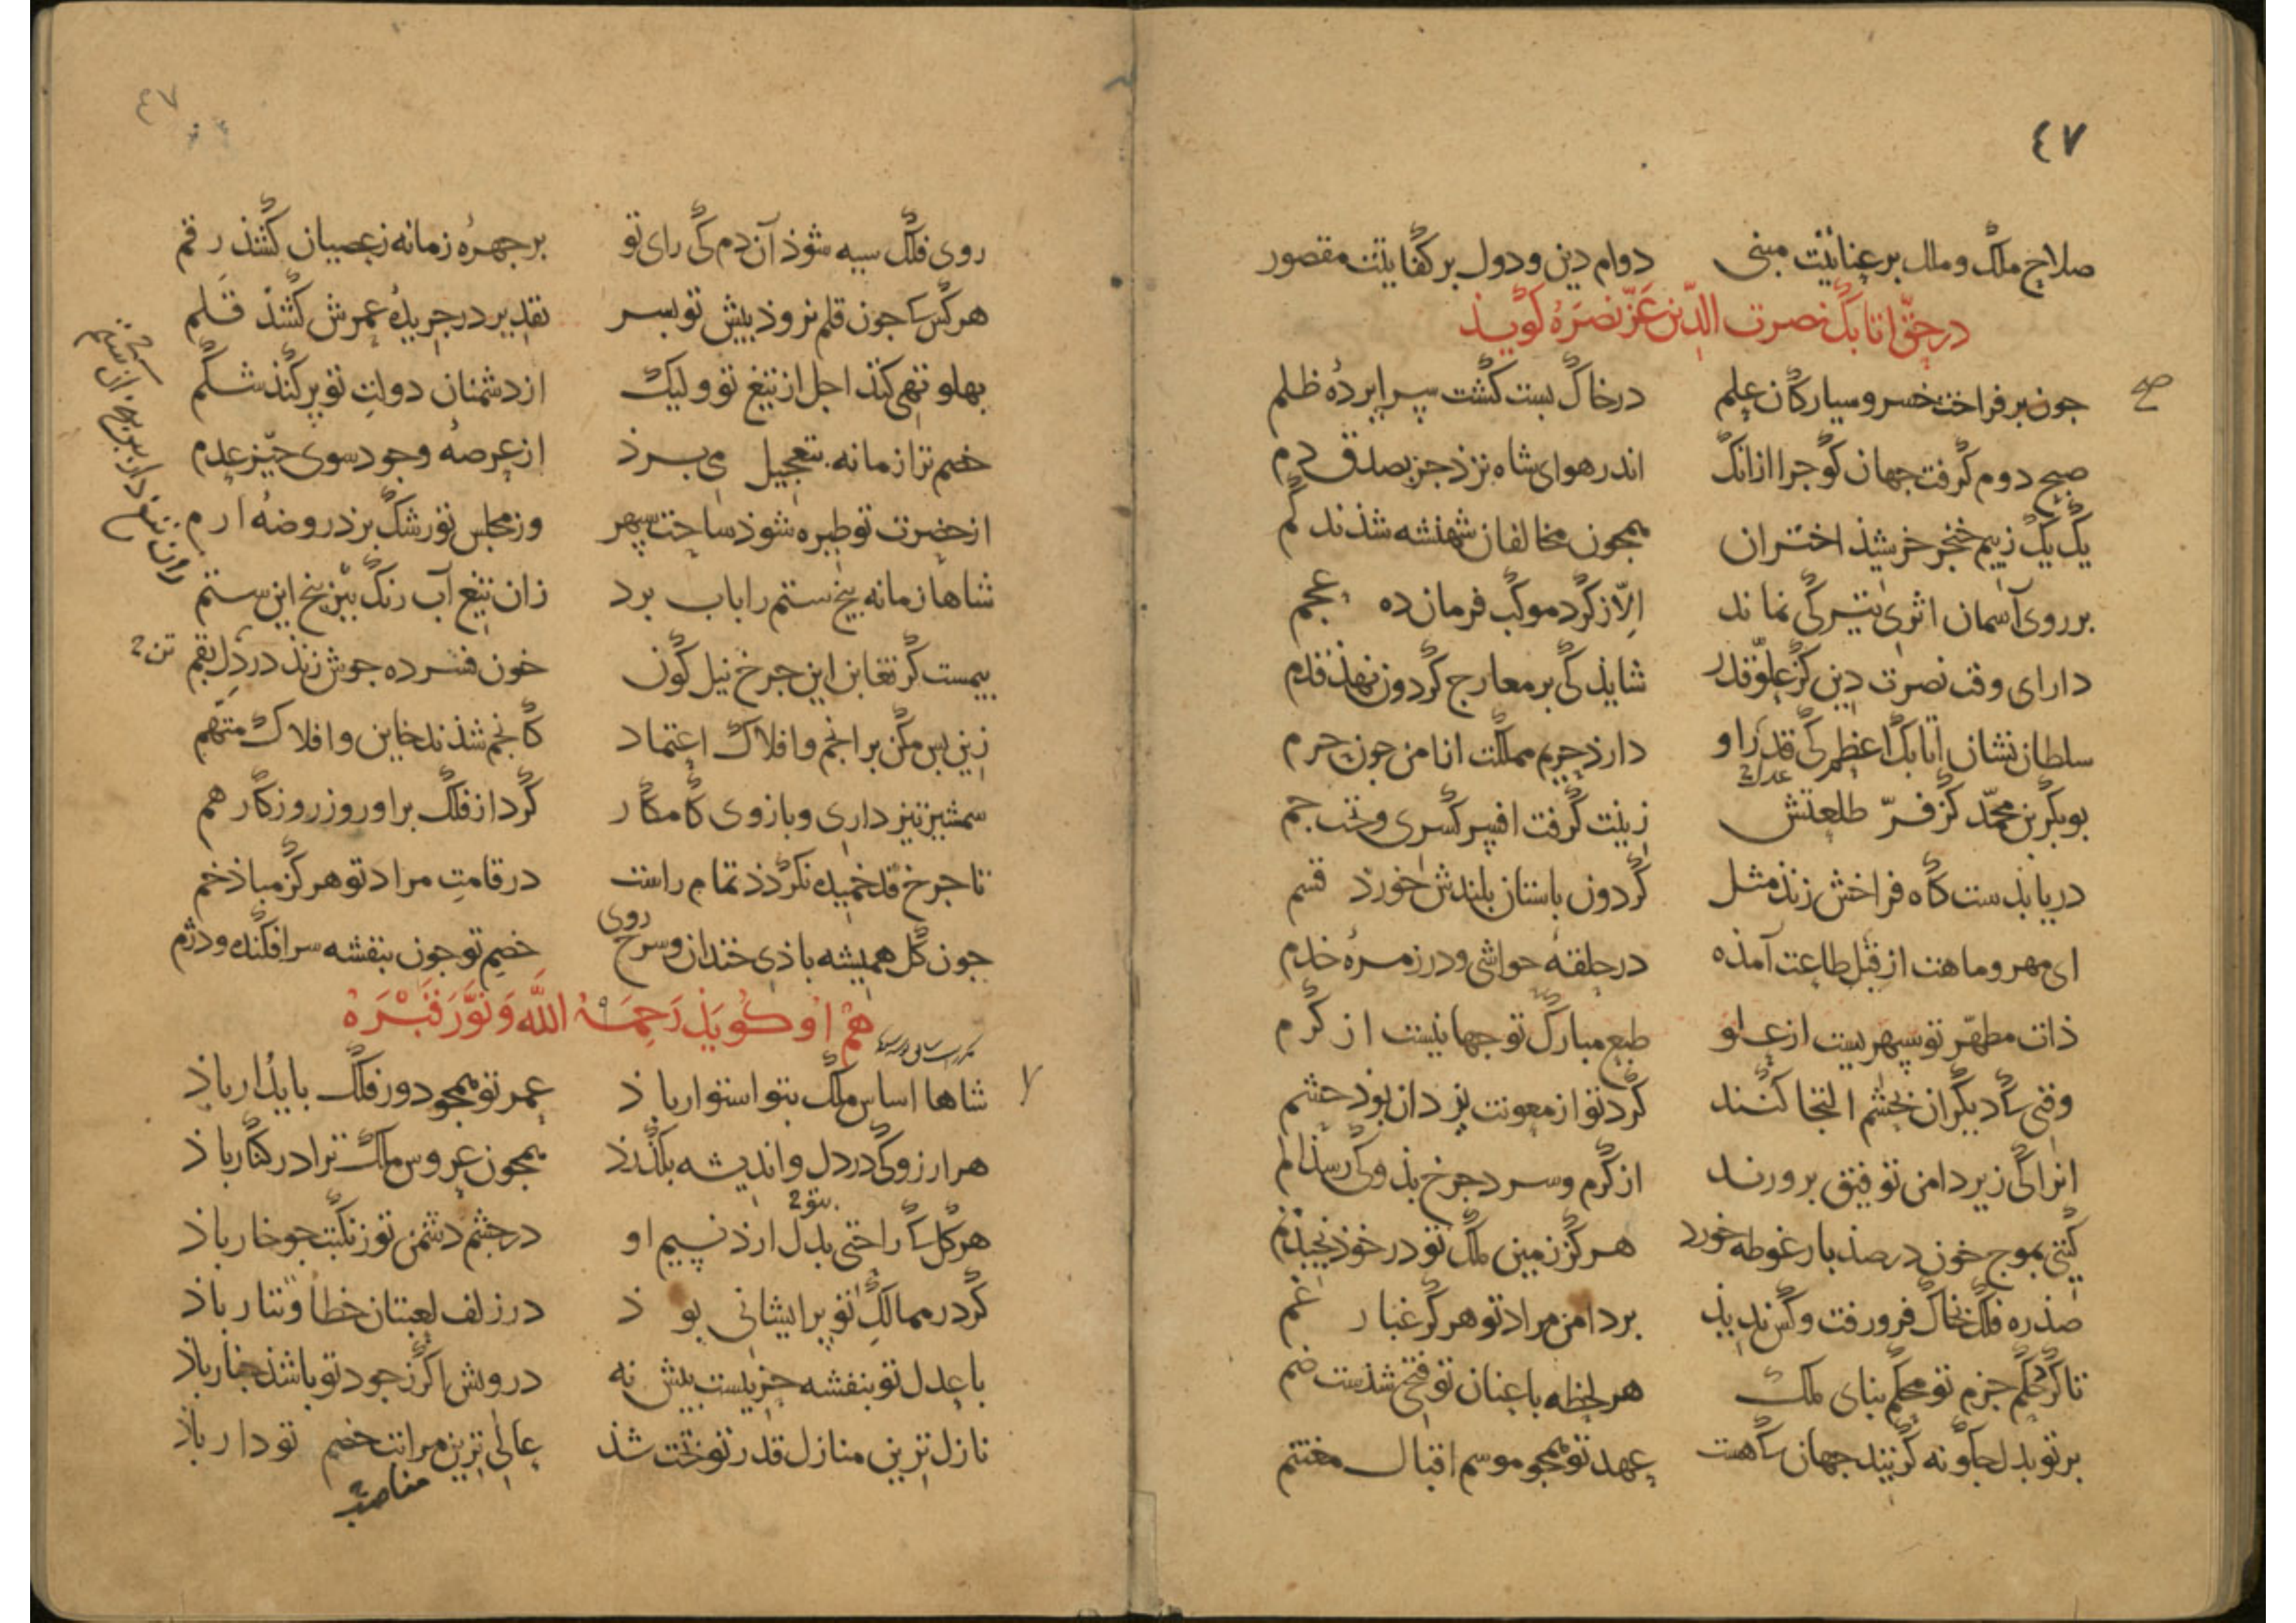 ٤٧
صلاح ملک و ملل بر عنایتت مبنی دوام دین و دول بر کفایتت مقصور
در حق اتابک نصرت الدّین عَزّ نصَرهُ کوید
جون بر فراخت خسرو سیارکان علم در خاک بست کشت سرابردهٔ ظلم
صبح دوم کرفت جهان کو جرا ازانک اندر هوای شاه نزد جز بصدق دم
یک یک ز بیم خنجر خرشیذ اختران همجون مخالفان شهنشه شذند کم
بر روی آسمان اثری تیرکی نماند الّا ز کرد موکب فرمان ده عجم
دارای وقت نصرت دین کز علوّ قدر شایذ کی بر معارج کردون نهذ قدم
سلطان نشان اتابک اعظم کی قدر او دارذ حریم مملکت انا من جون حرم
عدل2
بوبکر بن محمّد کز فرّ طلعتش زینت کرفت افسر کسری و تخت جم
دریا بذست کاه فراخش زند مثل کردون باستان بلندش خورد قسم
ای مهر و ماهت از قبل طاعت آمذه در حلقهٔ حواشی و در زمرهٔ خدم
ذات مطهّر تو سپهریست از علو طبع مبارک تو جهانیست از کرم
وقتی کا دیکران بحشم التجا کنند کرد تو از معونت یزدان بوذ حشم
انرا کی زیر دامن توفیق برورند از کرم و سرد جرخ بذو کی رسذ الم
کیتی بموج خون در صذ بار غوطه خورد هرکز زمین ملک تو در خوذ نجیذ نم
صذره فلک بخاک فرو رفت و کس ندیذ بر دامن مراد تو هرکز غبار غم
تا کرد حکم جزم تو محکم بنای ملک هر لحظه با عنان تو فتحی شذست ضم
بر تو بدل جکونه کزیند جهان کاهست عهد تو همجو موسم اقبال مغتنم
٤٧
روی فلک سیه شوذ آن دم کی رای تو بر جهرهٔ زمانه ز عصیان کشذ رقم
هر کس کا جون قلم نروذ بیش تو بسر تقدیر در جریدهٔ عمرش کشذ قلم
بهلو تهی کند اجل از تیغ تو ولیک از دشمنان دولتِ تو پر کند شکم
خصم ترا زمانه بتعجیل می برذ از عرصهٔ وجود سوی حیّز عدم
از حضرت تو طیره شوذ ساحت سپهر وز مجلس تو رشک برذ روضهٔ ارم
شاها زمانه بیخ ستم را باب برد زان تیغ آب رنک ببُر بیخ این ستم
بیمست کز تغابن این جرخ نیل کون خون فسرده جوش زند در دل بقم
تن2
زین بس مکن بر انجم و افلاک اعتماد کانجم شذند خاین و افلاک متّهم
سمشیر تیز داری و بازوی کامکار کرد از فلک براور و ز روزکار هم
تا جرخ قد خمیده نکردذ تمام راست در قامتِ مراد تو هرکز مباذ خم
روی
جون کل همیشه باذی خندان و سرخ خصم تو جون بنفشه سرافکنده و دژم
هم او کوید رَحِمَهُ اللّه وَ نَوَّرَ قَبْرَهُ
شاها اساس ملک بتو استوار باذ عمر تو همجو دور فلک بایدار باذ
هر ارزو کی در دل و اندیشه بکذرذ همجون عروس ملک ترا در کنار باذ
بتو2
هر کل کا راحتی بدل ارذ نسیم او در جشم دشمن تو ز نکبت جو خار باذ
کر در ممالکِ تو پریشانی بوذ در زلف لعبتان خطا و تتار باذ
با عدل تو بنفشه جزیست بیش نه درویش اکر ز جود تو باشذ جنار باذ
نازل ترین منازل قدر تو تخت شذ عالی ترین مراتب خصم تو دار باذ
مناصب